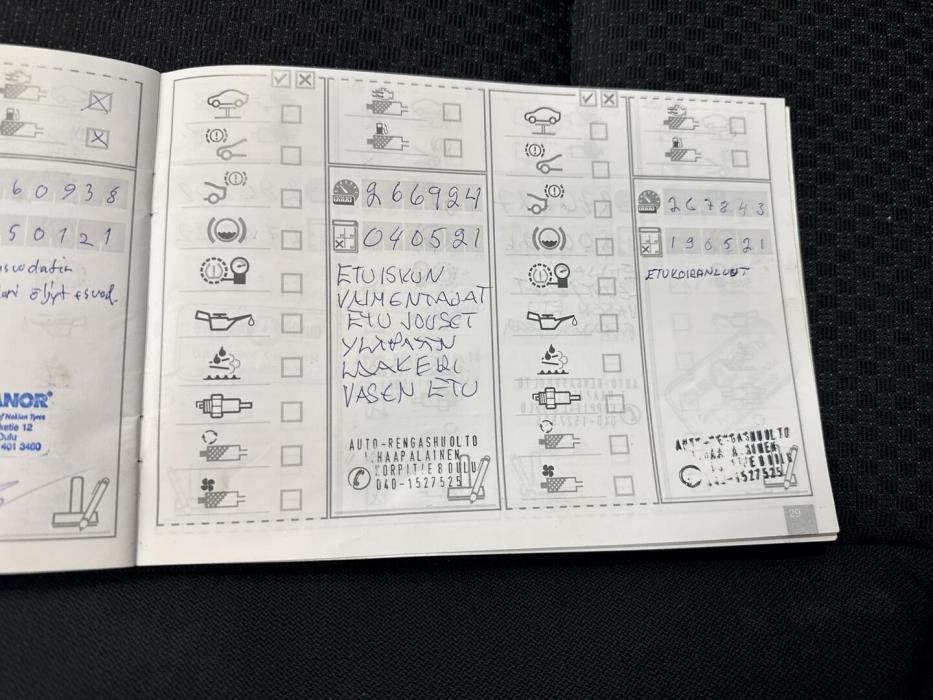 60938
50121
ANOR®
f Nokian Tyres
ketie 12
Oulu
401 3460
266924
040521
ETUISKUN
VAIMENTAJAT
ETU JOUSET
YLÄPÄÄN
LAAKERI
VASEN ETU
AUTO-RENGASHUOLTO
HAAPALAINEN
KORPITIE 8 OULU
040-1527525
267843
190521
ETUKOIRANLUUT
AUTO-RENGASHUOLTO
29